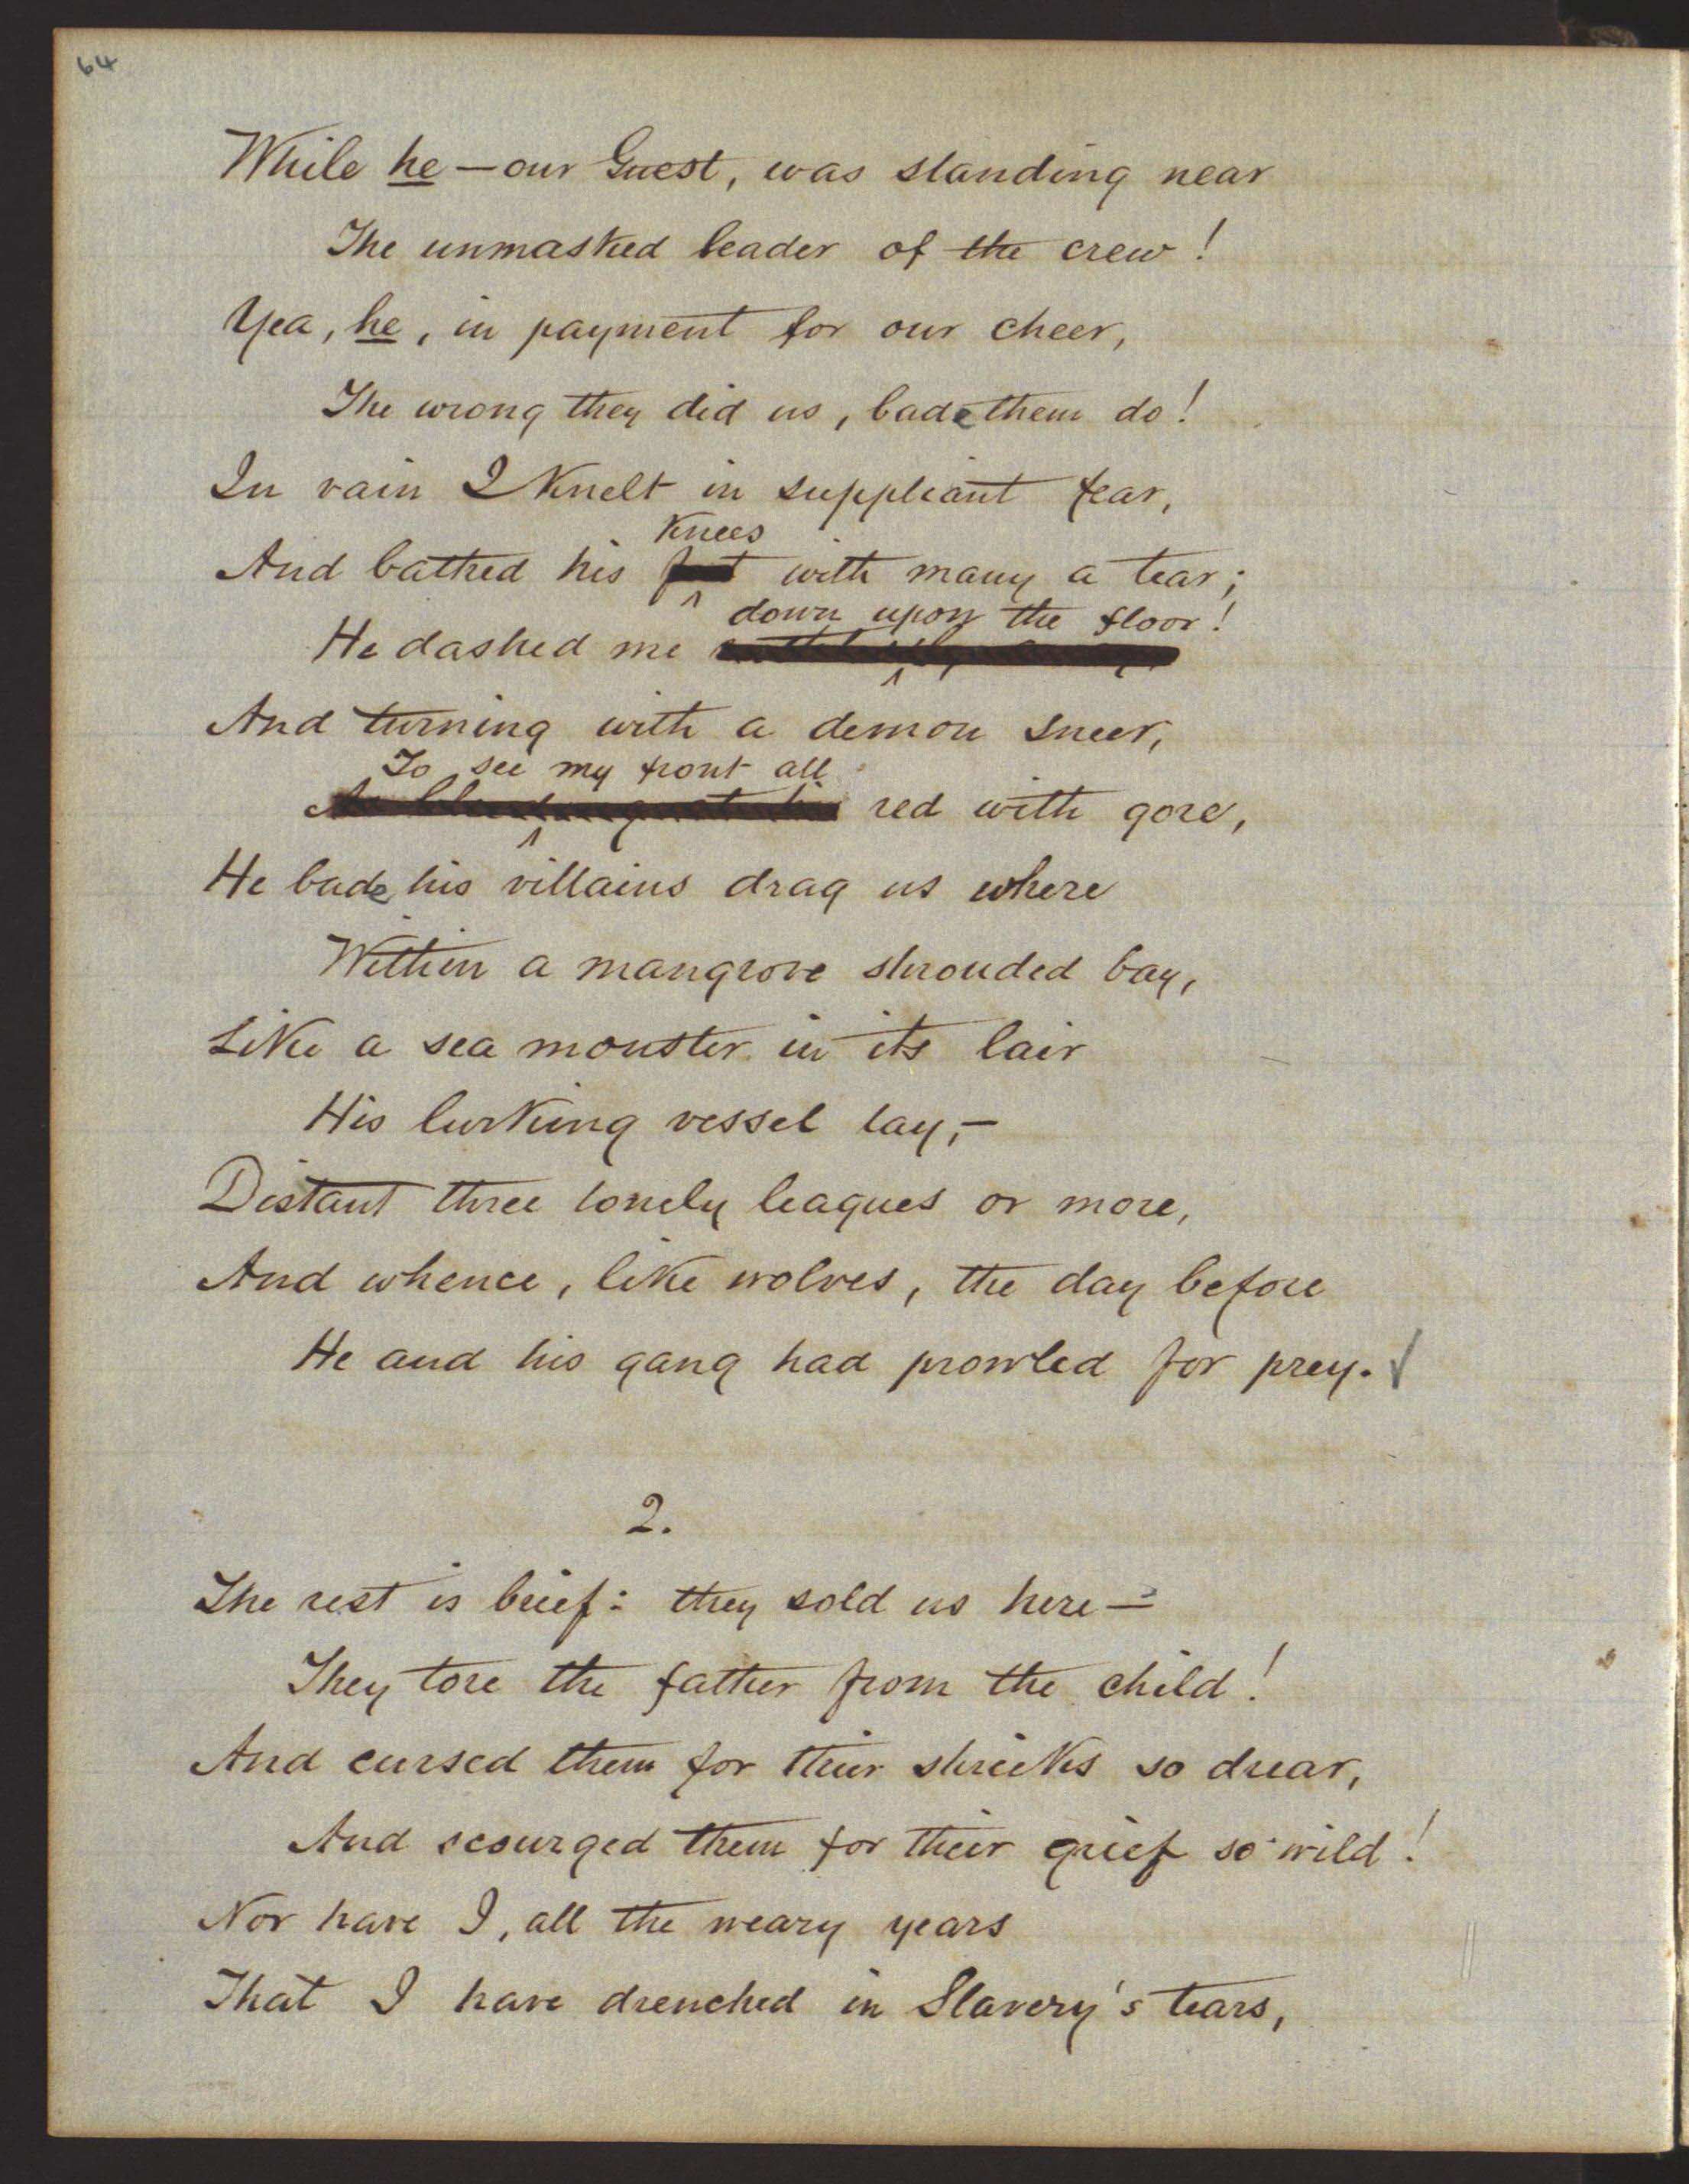 64
While he — our Guest, was standing near
The unmasked leader of the crew!
Yea, he, in payment for our cheer,
The wrong they did us, bade them do!
In vain I knelt in suppliant fear,
knees
And bathed his feet with many a tear;
down upon the floor!
He dashed me
And turning with a demon sneer,
To see my front all
red with gore,
He bade his villains drag us where
Within a mangrove shrouded bay,
Like a sea monster in its lair
His lurking vessel lay,—
Distant three lonely leagues or more,
And whence, like wolves, the day before
He and his gang had prowled for prey.
2.
The rest is brief: they sold us here —
They tore the father from the child!
And cursed them for their shrieks so drear,
And scourged them for their grief so wild!
Nor have I, all the weary years
That I have drenched in Slavery's tears,